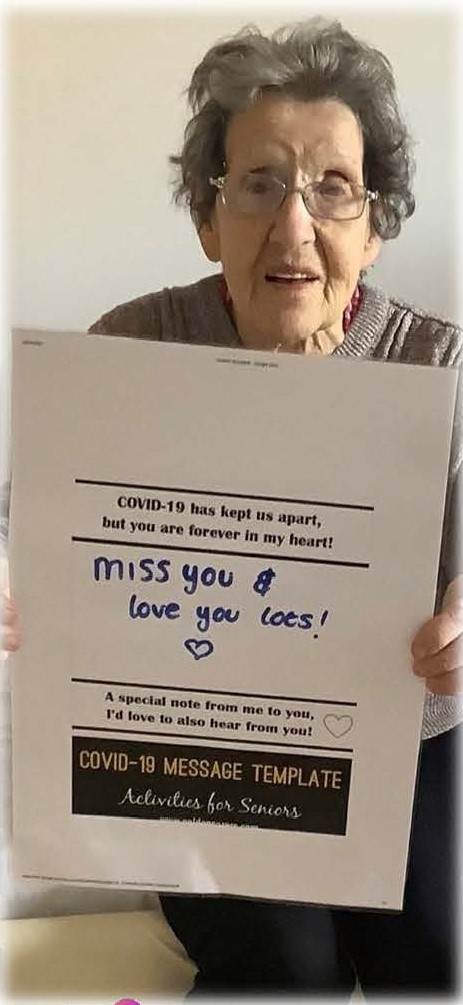 COVID-19 has kept us apart,
but you are forever in my heart!
miss you &
love you lots!
A special note from me to you,
I'd love to also hear from you!
COVID-19 MESSAGE TEMPLATE
Activities for Seniors